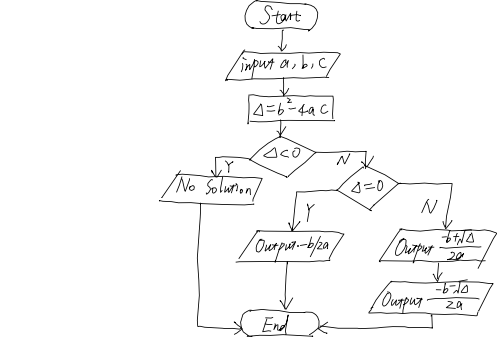 Start
input a, b, c
Δ=b²-4ac
Δ<0
Y
N
No Solution
Δ=0
Y
N
Output -b/2a
Output (-b+√Δ)/2a
Output (-b-√Δ)/2a
End